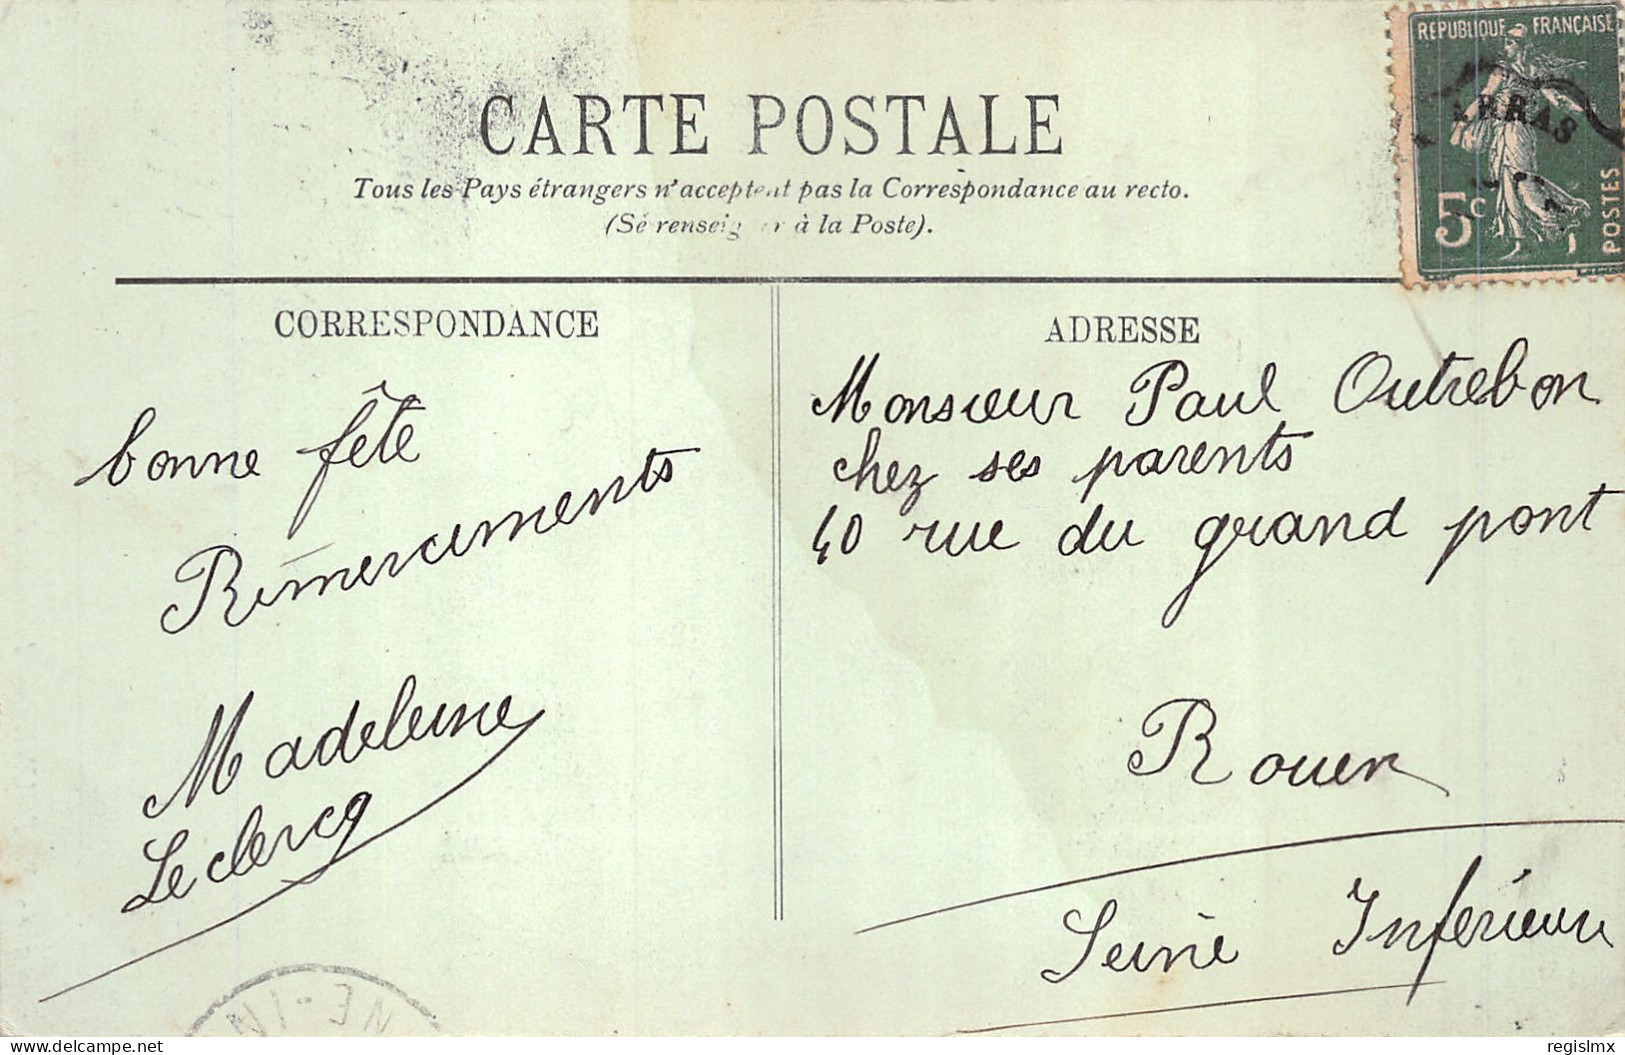 CARTE POSTALE
Tous les Pays étrangers n'acceptent pas la Correspondance au recto.
(Se renseigner à la Poste).
REPUBLIQUE FRANÇAISE
ARRAS
5c
POSTES
CORRESPONDANCE
bonne fête
Remerciements
Madeleine
Leclercq
NE-IN
ADRESSE
Monsieur Paul Outrebon
chez ses parents
40 rue du grand pont
Rouen
Seine Inférieure
regislmx
delcampe.net